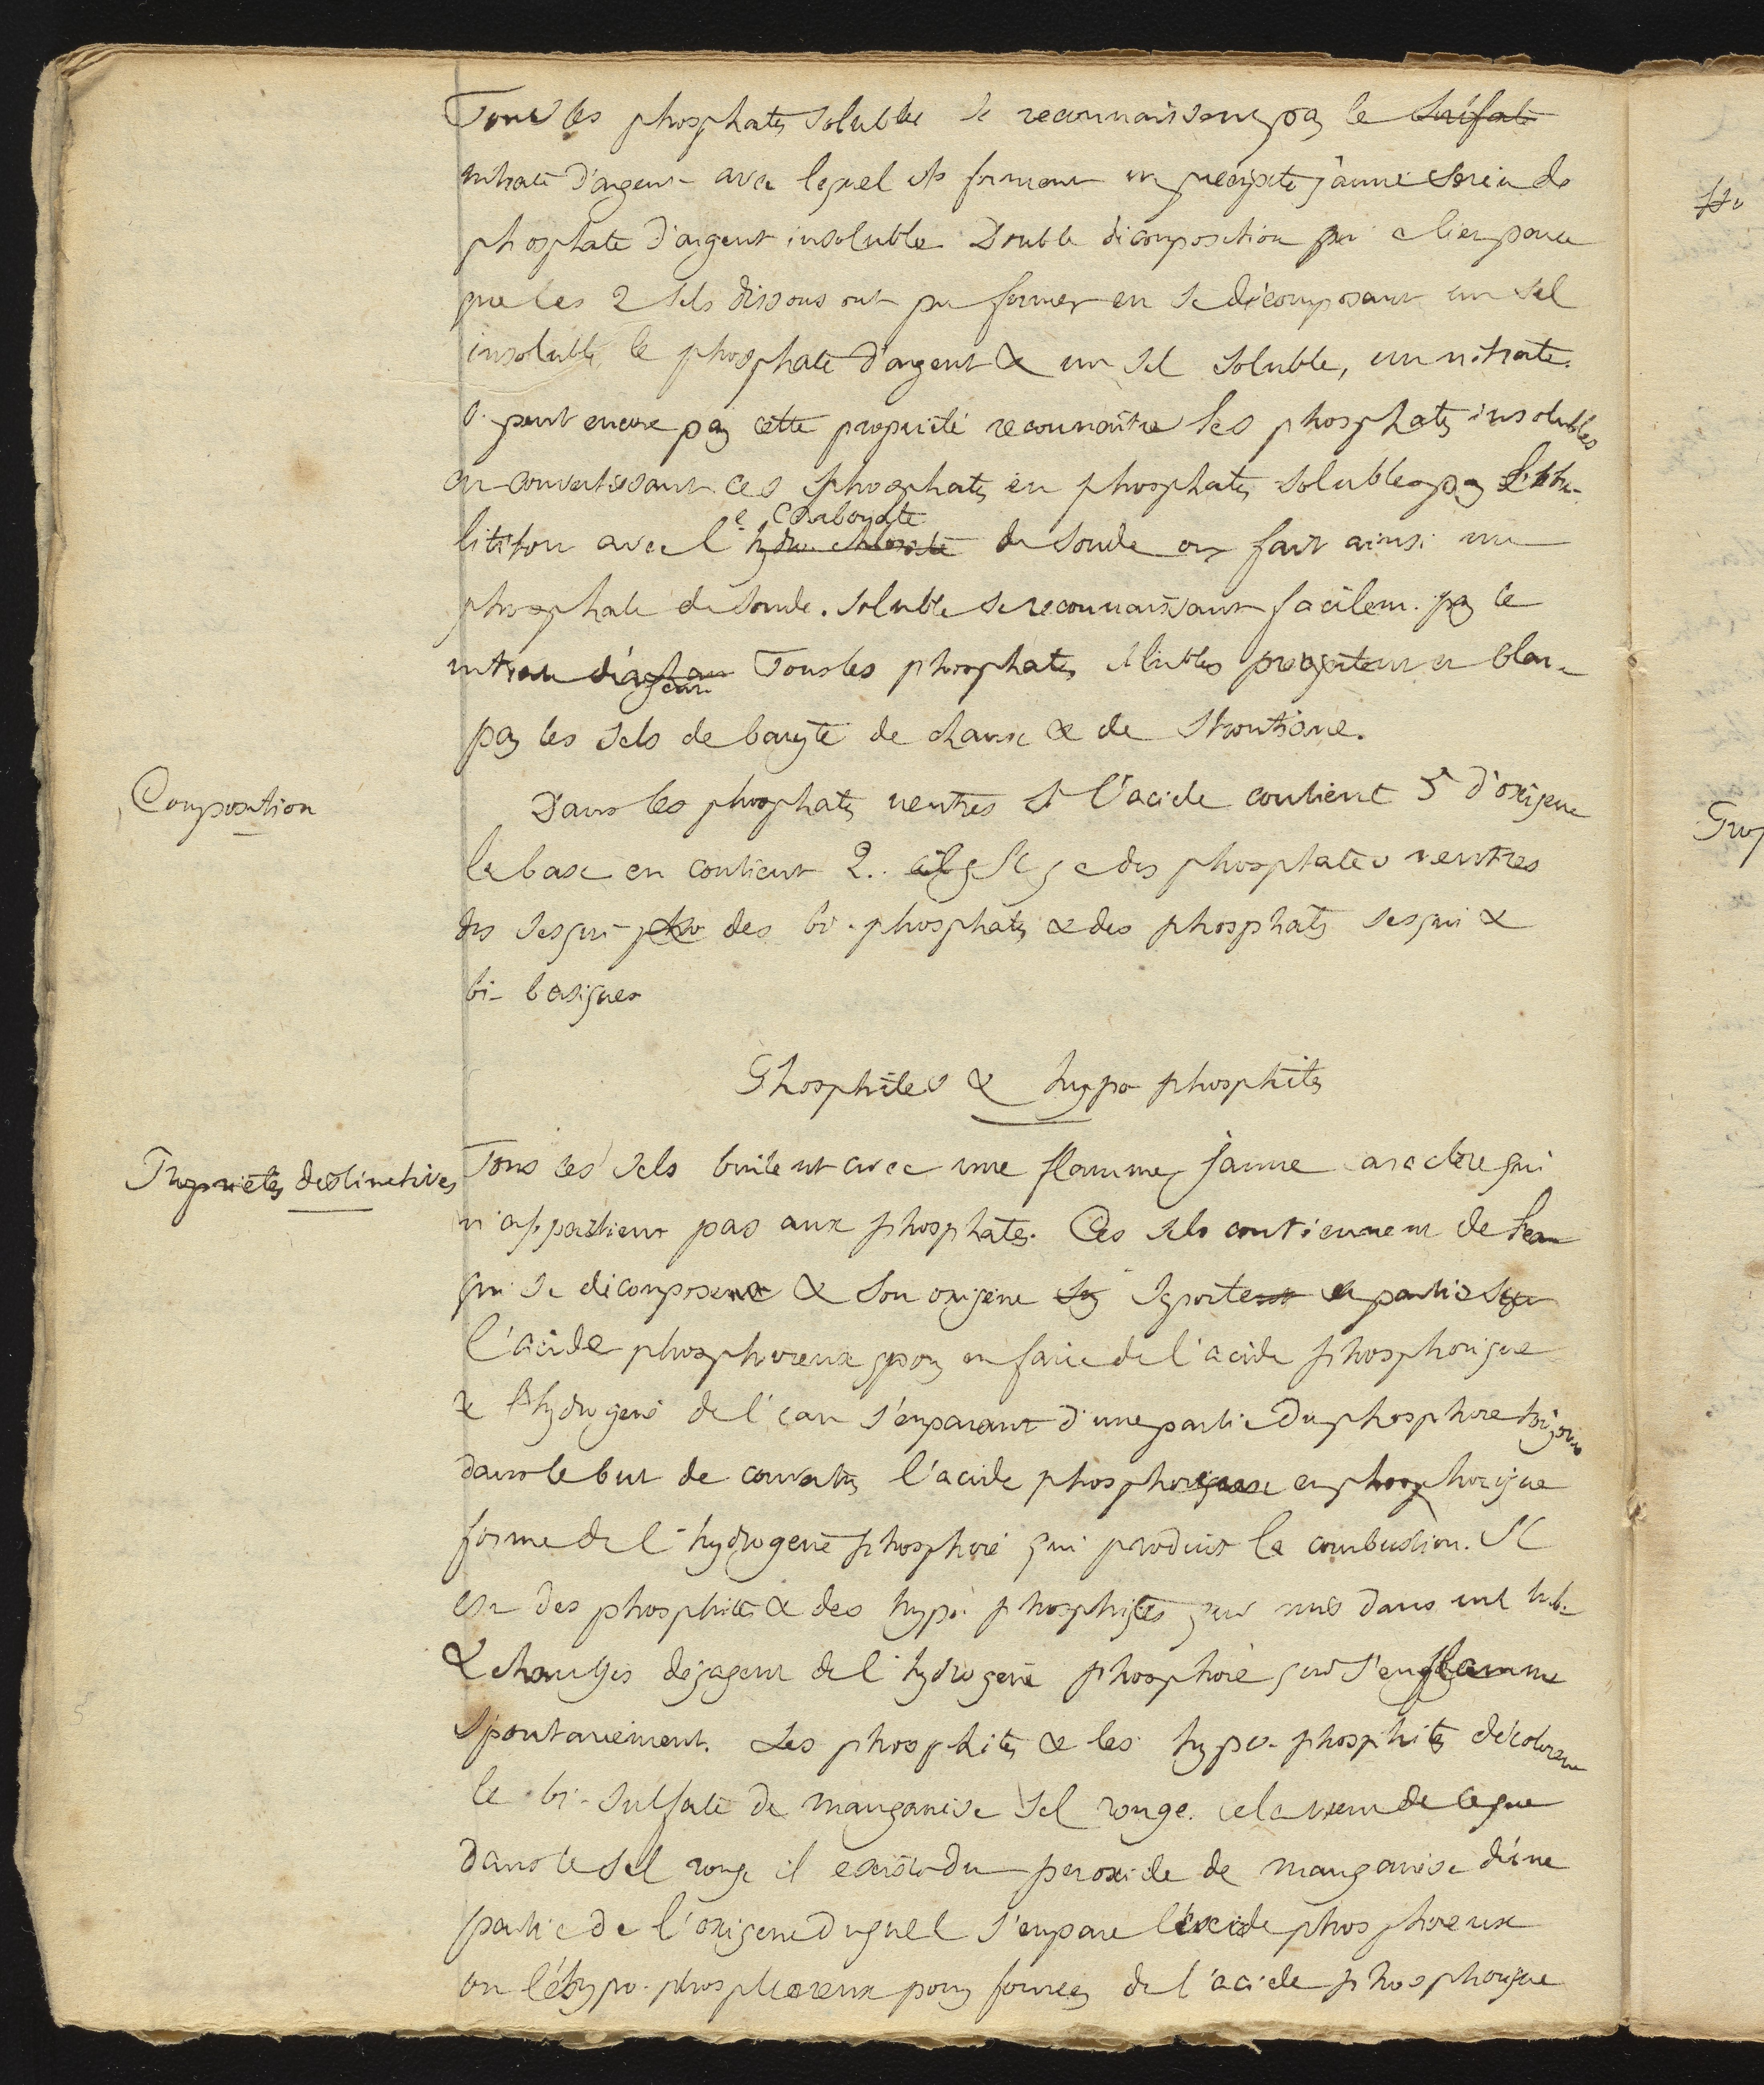 Tous les phosphates solubles se reconnaissent par le sulfate
nitrate d'argent avec lequel ils forment un précipité jaune serin de
phosphate d'argent insoluble. Double décomposition a lieu parce
que les 2 sels dissous ont pu former en se décomposant un sel
insoluble le phosphate d'argent & un sel soluble, un nitrate.
peut encore par cette propriété reconnaître les phosphates insolubles
en convertissant ces phosphates en phosphates solubles par l'ébu-
e carbonate
lition avec l'hydro chlorate de soude on fait ainsi un
phosphate de soude soluble se reconnaissant facilem. par le
nitrate d'argent Tous les phosphates solubles précipitent en blanc
par les sels de baryte de chaux & de strontiane.
Composition
Dans les phosphates neutres si l'acide contient 5 d'oxigene
la base en contient 2. Il y a des phosphates neutres
des sesqui- pho des bi-phosphates & des phosphates sesqui &
bi-basiques
Phosphites & hypo phosphites
Propriétés distinctives
Tous ces sels brûlent avec une flamme jaune caractère qui
n'appartient pas aux phosphates. Ces sels contiennent de l'eau
qui se décompose & son oxigène se porte en partie sur
l'acide phosphoreux pour en faire de l'acide phosphorique
& l'hydrogène de l'eau s'emparant d'une partie du phosphore toujours
dans le but de convertir l'acide phosphoreux en phosphorique
forme de l'hydrogène phosphoré qui produit la combustion. Il
est des phosphites & des hypo-phosphites qui mis dans un tub.
& chauffés dégagent de l'hydrogène phosphoré qui s'enflamme
spontanément. Les phosphites & les hypo-phosphites décolorent
le bi-sulfate de manganèse sel rouge. cela vient de ce que
dans le sel rouge il existe du peroxide de manganèse d'une
partie de l'oxigene duquel s'empare l'acide phosphoreux
ou l'hypo-phosphoreux pour former de l'acide phosphorique